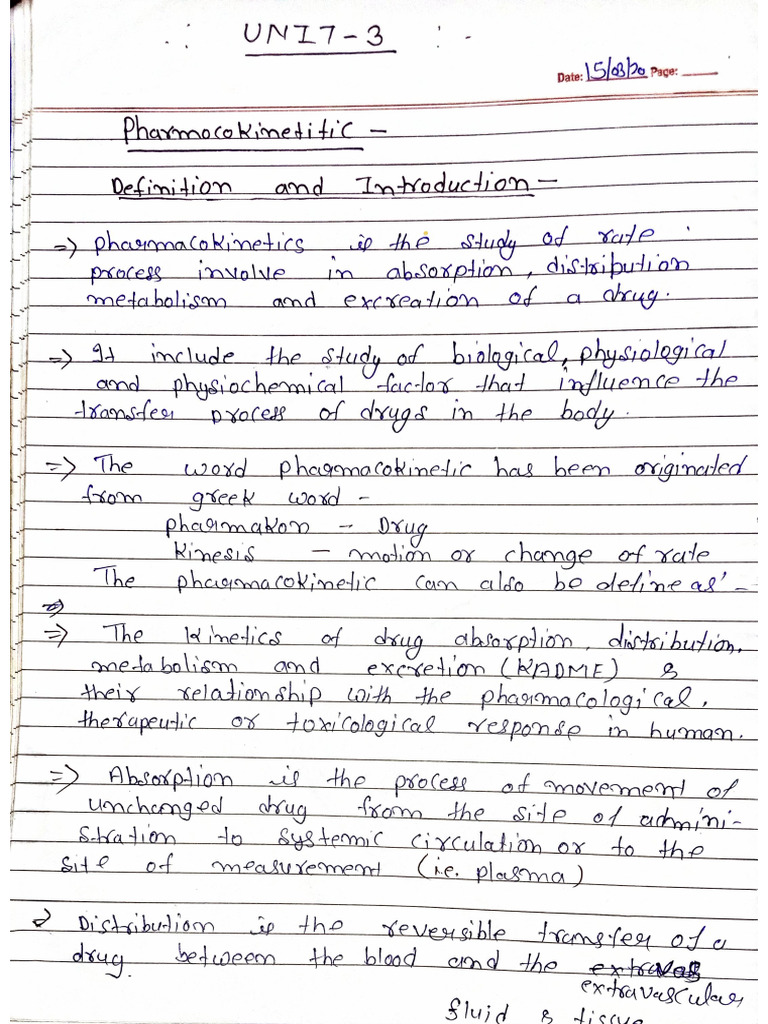 UNIT-3
Date: 15/03/20 Page:
Pharmocokinetific -
Definition and Introduction -
=> pharmacokinetics is the study of rate
process involve in absorption, distribution
metabolism and excreation of a drug.
=> It include the study of biological, physiological
and physiochemical factor that influence the
transfer process of drugs in the body.
=> The word pharmacokinetic has been originated
from greek word -
pharmakon - Drug
kinesis - motion or change of rate
The pharmacokinetic can also be define as' -
=> The kinetics of drug absorption, distribution,
metabolism and excretion (KADME) &
their relationship with the pharmacological,
therapeutic or toxicological response in human.
=> Absorption is the process of movement of
unchanged drug from the site of admini-
stration to systemic circulation or to the
site of measurement (i.e. plasma)
=> Distribution is the reversible transfer of a
drug between the blood and the extravas
extravascular
fluid & tissue